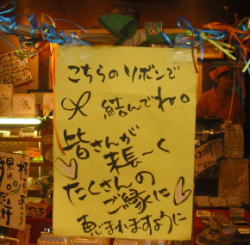 こちらのリボンで
結んでネ。
皆さんが
末長〜く
たくさんの
ご縁に
恵まれますように